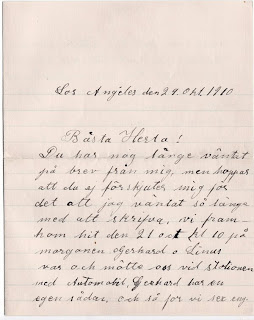 Los Angeles den 29 Okt. 1910
Bästa Herta!
Du har nog länge väntat
på brev från mig, men hoppas
att du ej förskjuter mig för
det att jag väntat så länge
med att skrifva, vi fram-
kom hit den 21 oct kl 10 på
morgonen Gerhard o. Linus
var och mötte oss vid stationen
med Automobil, Gerhard har en
egen sådan, och så for vi sex eng.